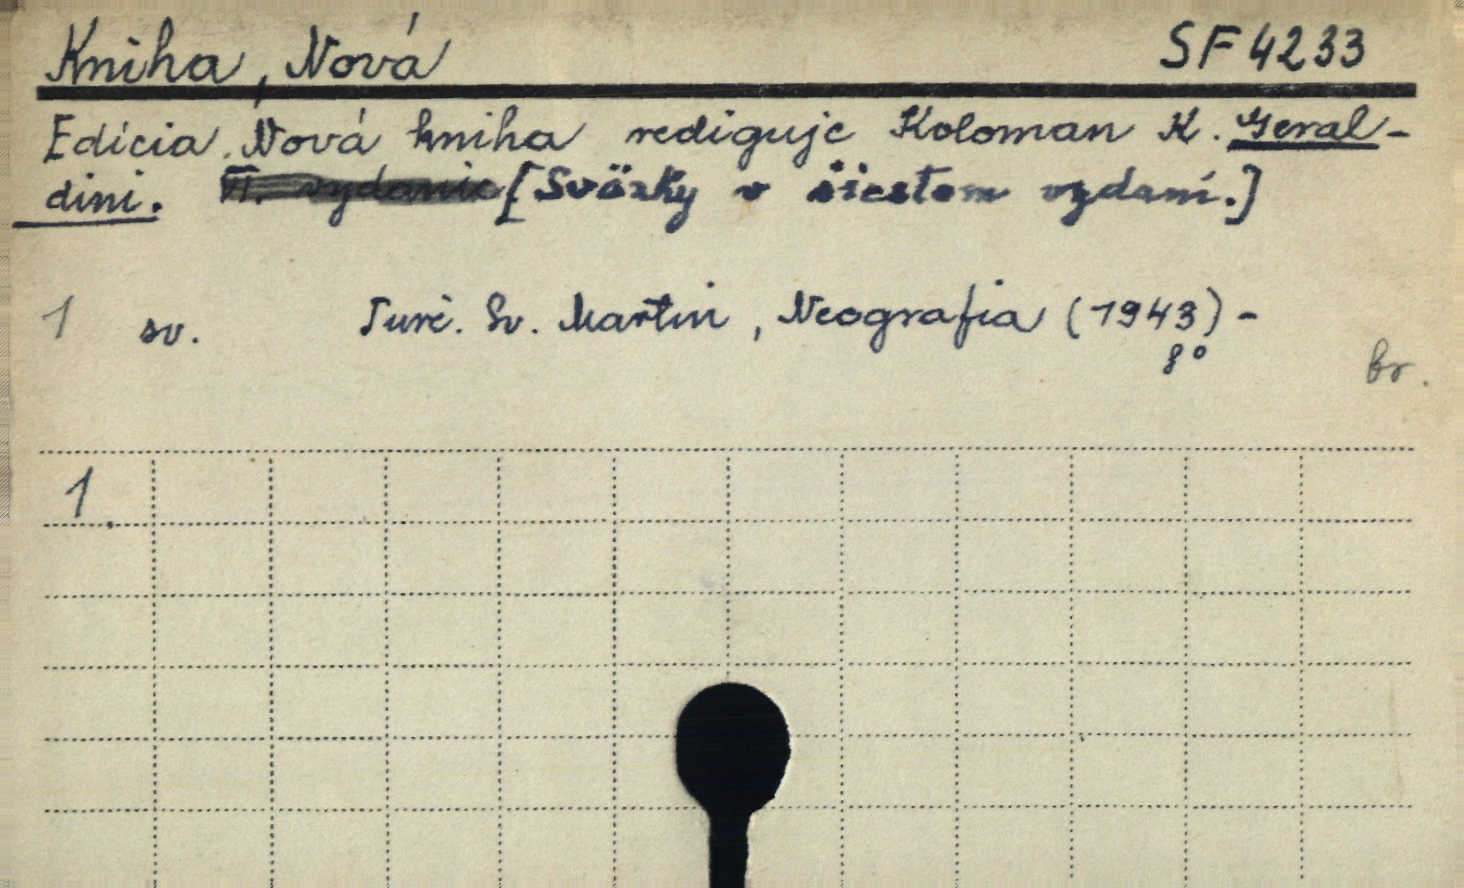 Kniha, Nová SF 4233
Edícia Nová kniha rediguje Koloman K. Geral-
dini. VI. vydanie [Sväzky v šiestom vydaní.]
1 sv. Turč. Sv. Martin, Neografia (1943) -
8°
br.
1